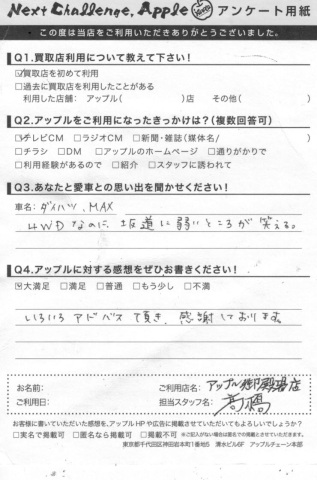 Next Challenge, Apple アンケート用紙
この度は当店をご利用いただきありがとうございました。
Q1.買取店利用について教えて下さい!
☑買取店を初めて利用
□過去に買取店を利用したことがある
利用した店舗： アップル( )店 その他( )
Q2.アップルをご利用になったきっかけは?(複数回答可)
☑テレビCM □ラジオCM □新聞・雑誌(媒体名/ )
□チラシ □DM □アップルのホームページ □通りがかりで
□利用経験があるので □紹介 □スタッフに誘われて
Q3.あなたと愛車との思い出を聞かせください!
車名： ダイハツ、MAX
4WDなのに、坂道に弱いところが笑える。
Q4.アップルに対する感想をぜひお書きください!
☑大満足 □満足 □普通 □もう少し □不満
いろいろアドバス て頂き、感謝しております。
お名前： ご利用店名： アップル御 場店
ご利用日： 担当スタッフ名： 高橋
お客様に書いていただいた感想を、アップルHPや広告に掲載させていただいてもよろしいでしょうか?
□実名で掲載可 □匿名なら掲載可 □掲載不可 ※ご記入がない場合は匿名での掲載とさせていただきます。
東京都千代田区神田岩本町1番地5 清水ビル6F アップルチェーン本部